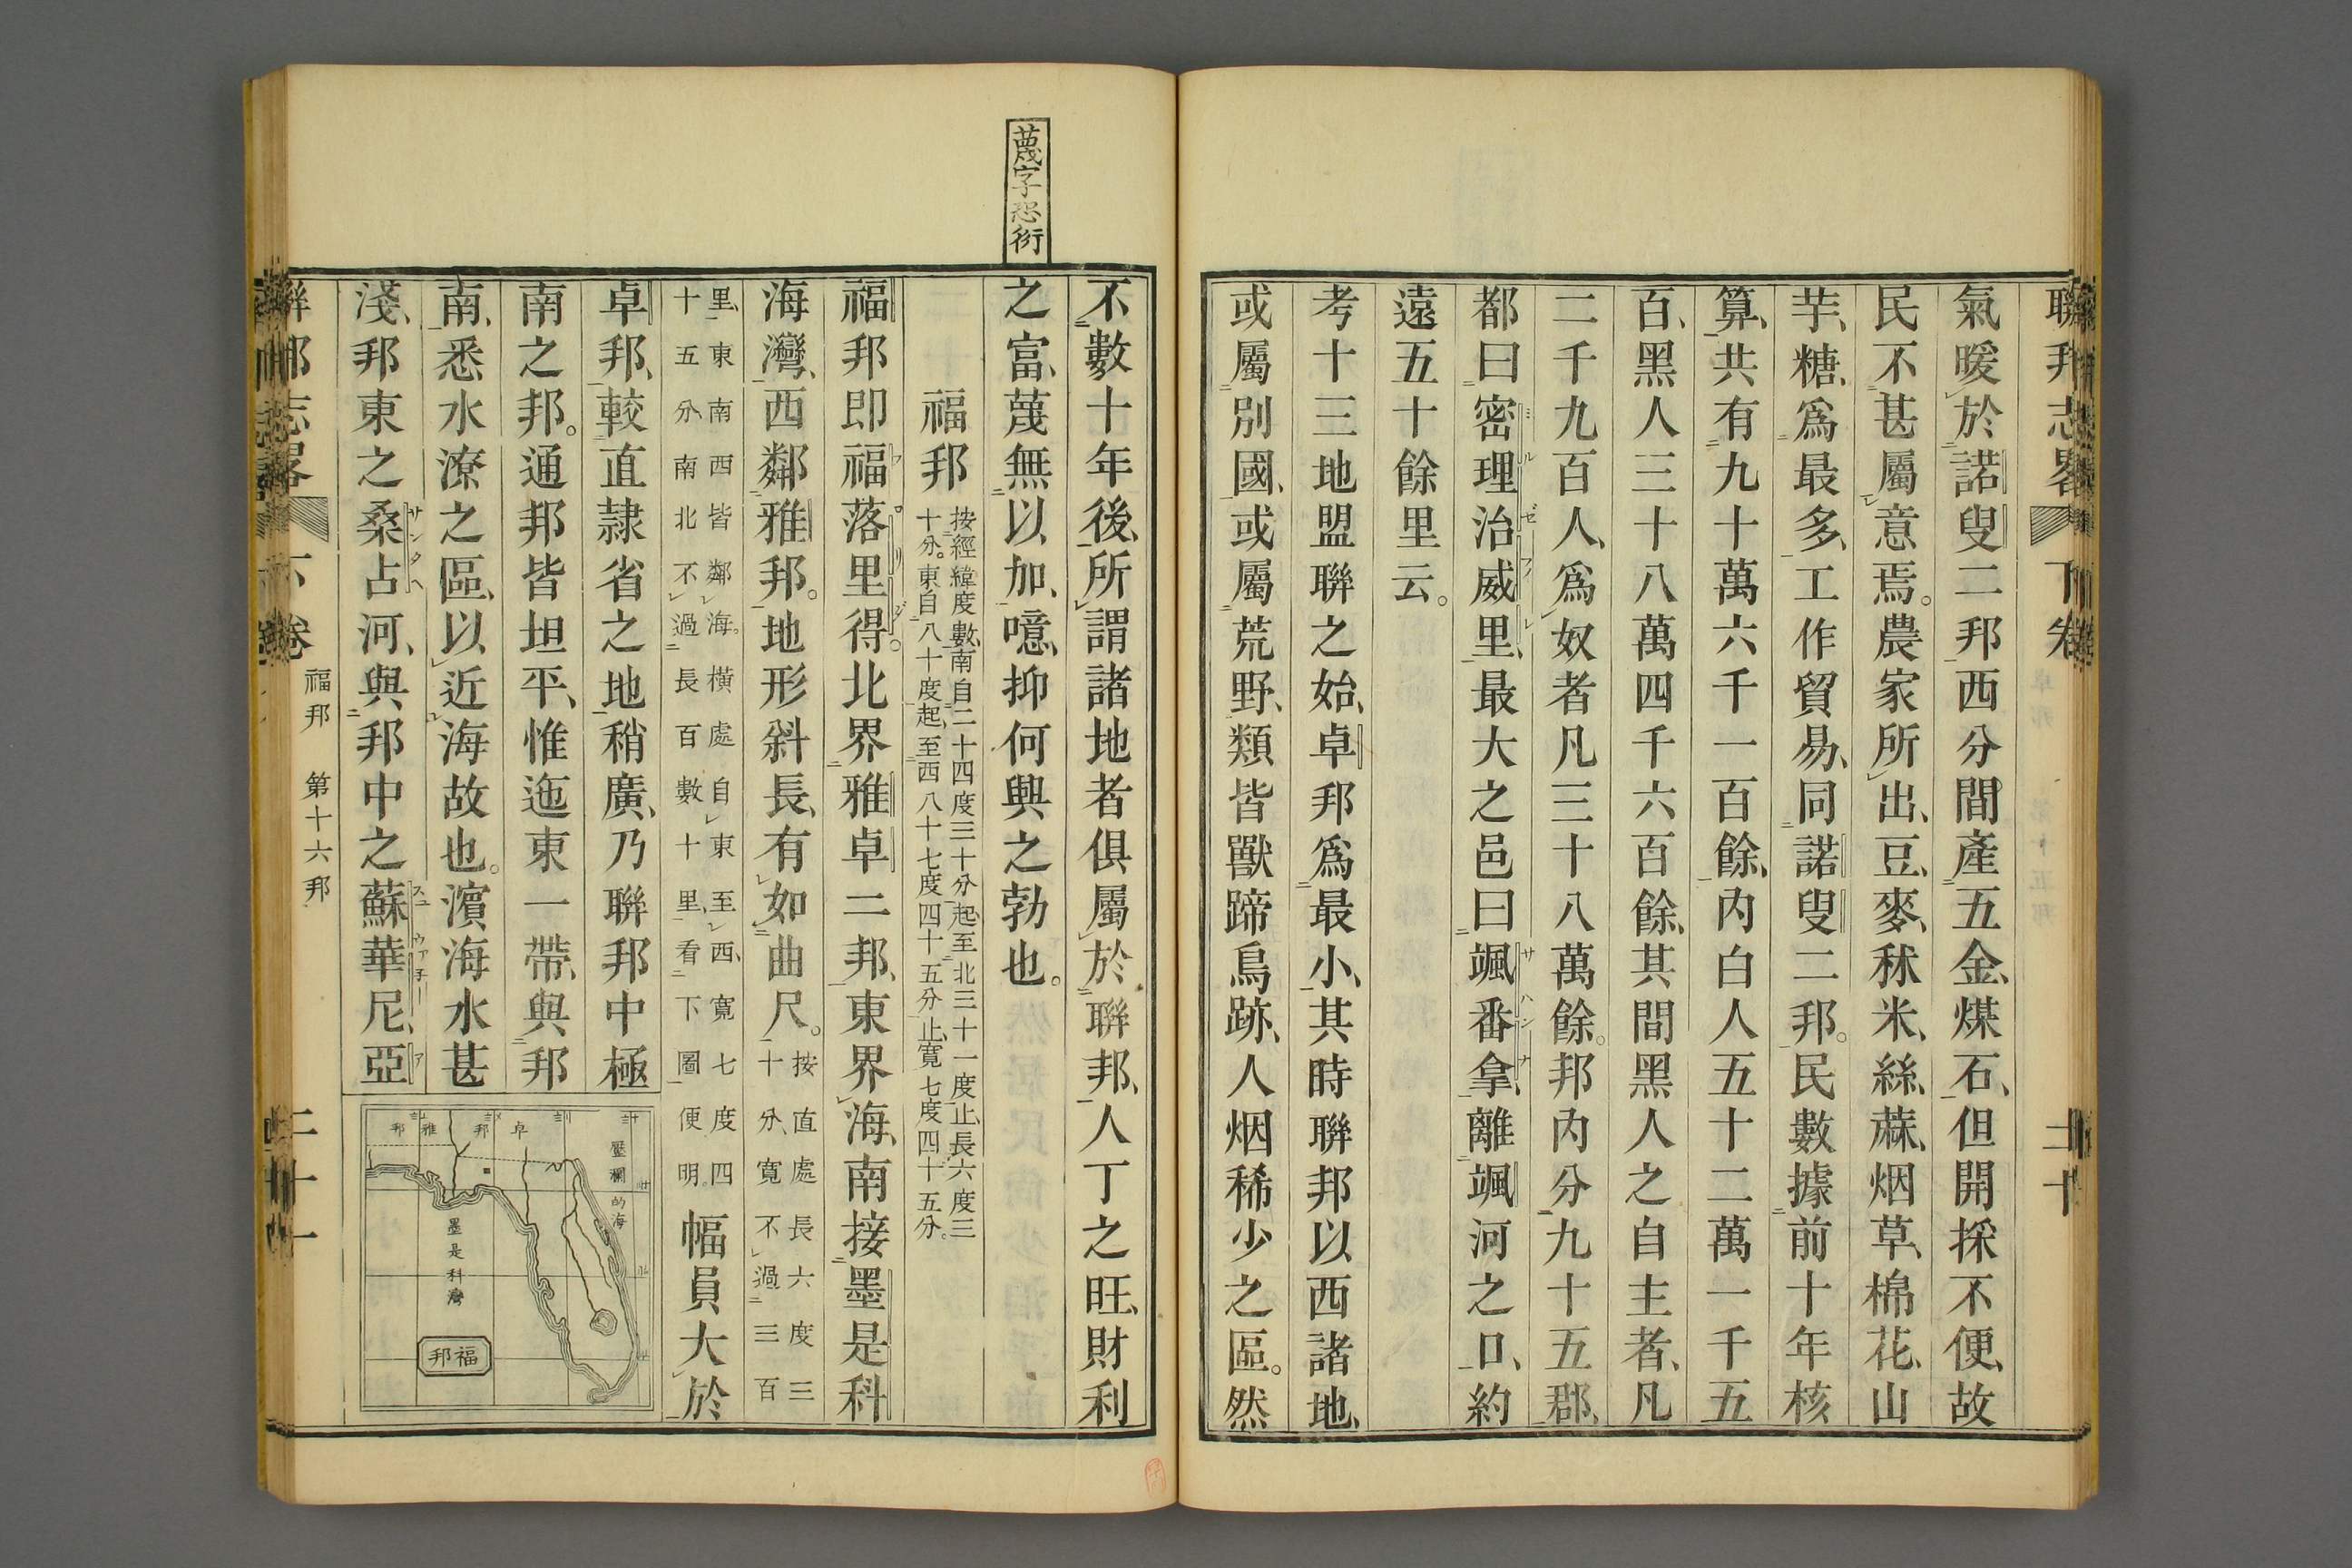 聯邦志畧 下卷 二十
氣暖、於諾叟二邦西分間產五金、煤石、但開採不便、故
民不甚屬意焉。農家所出、豆、麥、秫米、絲、蔴、烟草、棉花、山
芋、糖、爲最多、工作貿易、同諾叟二邦。民數據前十年核
算、共有九十萬六千一百餘、內白人五十二萬一千五
百、黑人三十八萬四千六百餘、其間黑人之自主者、凡
二千九百人、爲奴者凡三十八萬餘。邦內分九十五郡、
都曰密理治威里、最大之邑曰颯番拿、離颯河之口、約
遠五十餘里云。
考十三地盟聯之始、卓邦爲最小、其時聯邦以西諸地、
或屬別國、或屬荒野、類皆獸蹄鳥跡、人烟稀少之區。然
蔑字恐衍
不數十年後、所謂諸地者俱屬於聯邦、人丁之旺、財利
之富、蔑無以加、噫、抑何興之勃也。
福邦
按經緯度數、南自二十四度三十分起、至北三十一度止、長六度三
十分。東自八十度起、至西八十七度四十五分止、寬七度四十五分。
福邦即福落里得。北界雅卓二邦、東界海、南接墨是科
海灣、西鄰雅邦。地形斜長、有如曲尺。
按直處長六度三
十分、寬不過三百
里、東南西皆鄰海。橫處自東至西、寬七度四
十五分南北不過長百數十里、看下圖便明。
幅員大於
卓邦、較直隷省之地稍廣、乃聯邦中極
南之邦。通邦皆坦平、惟迤東一帶、與邦
南、悉水潦之區、以近海故也。濱海水甚
淺、邦東之桑占河、與邦中之蘇華尼、亞
卓邦
雅邦
壓瀾的海
墨是科灣
福邦
聯邦志畧 下卷 福邦 第十六邦 二十一